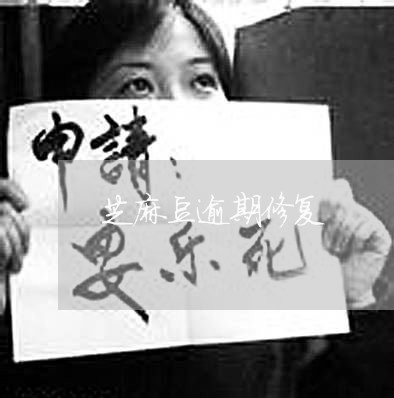 申請：
芝麻豆逾期修复
要乐死